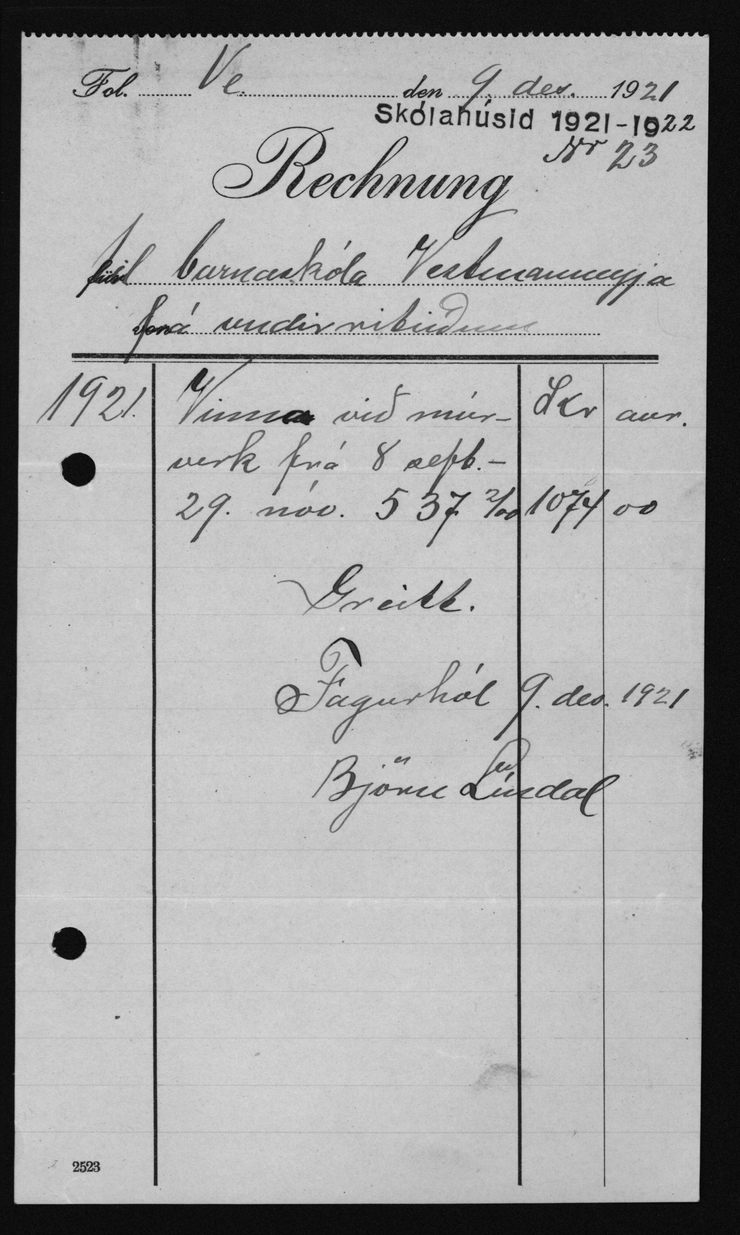 Fol. Ve. den 9. des. 1921
Skólahúsið 1921-1922
Nr 23
Rechnung
til barnaskóla Vestmanneyja
frá undirrituðum
1921. Vinna við múr- Kr aur.
verk frá 8 sept.-
29. nóv. 537 2/00 1074 00
Greitt.
Fagurhól 9. des. 1921
Björn Líndal
2523